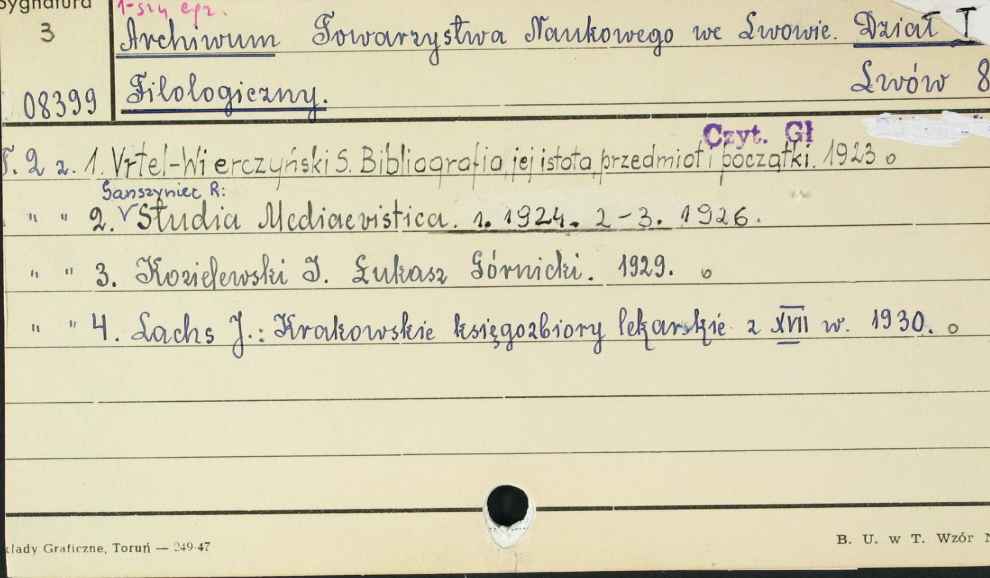 Sygnatura
1-szy egz.
3
Archiwum Towarzystwa Naukowego we Lwowie. Dział I
08399
Filologiczny. Lwów 8
Czyt. Gł
T. 2 z. 1. Vrtel-Wierczyński S. Bibliografia, jej istota, przedmiot i początki. 1923
Ganszyniec R:
" " 2. Studia Mediaevistica. 1. 1924. 2-3. 1926.
" " 3. Kozielewski I. Łukasz Górnicki. 1929.
" " 4. Lachs J.: Krakowskie księgozbiory lekarskie z XVII w. 1930.
kłady Graficzne, Toruń — 249-47
B. U. w T. Wzór N